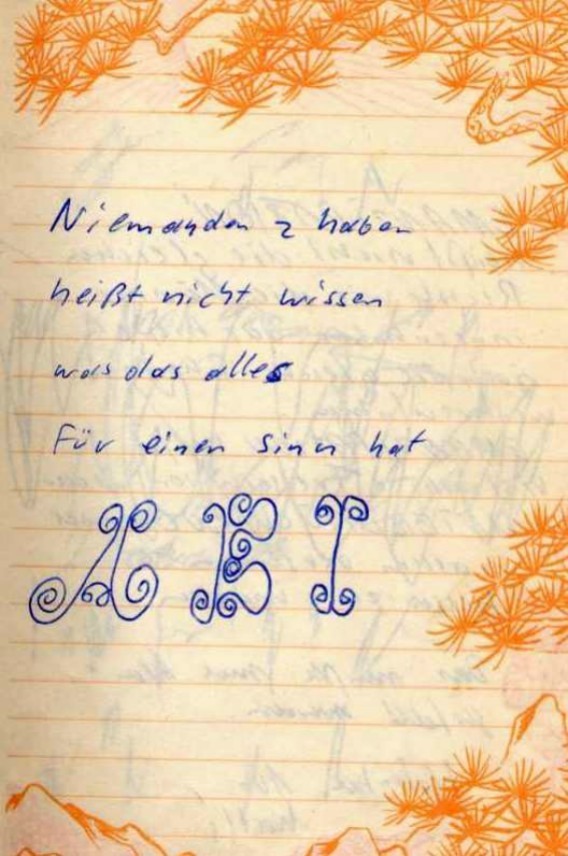 Niemanden z haben
heißt nicht wissen
was das alles
Für einen Sinn hat
AEI